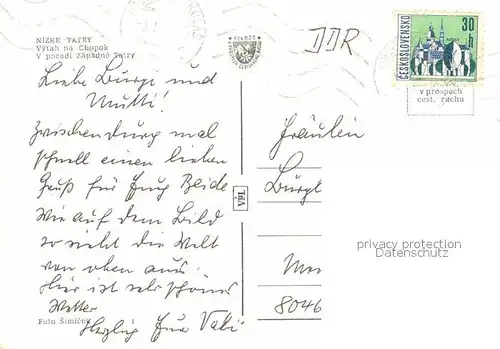 NÍZKE TATRY
Výťah na Chopok
V pozadí Západné Tatry
ČESKOSLOVENSKO
30 h
v prospech
cest. ruchu
DDR
Liebe Burgi und
Mutti!
Zwischendurch mal
schnell einen lieben
Gruß für Euch Beide
Wie auf dem Bild
so sieht die Welt
von oben aus.
Hier ist sehr schönes
Wetter
Herzlig Euer Vati
Foto Šimíček
VPL
Fräulein
Burgl
8046
privacy protection
Datenschutz